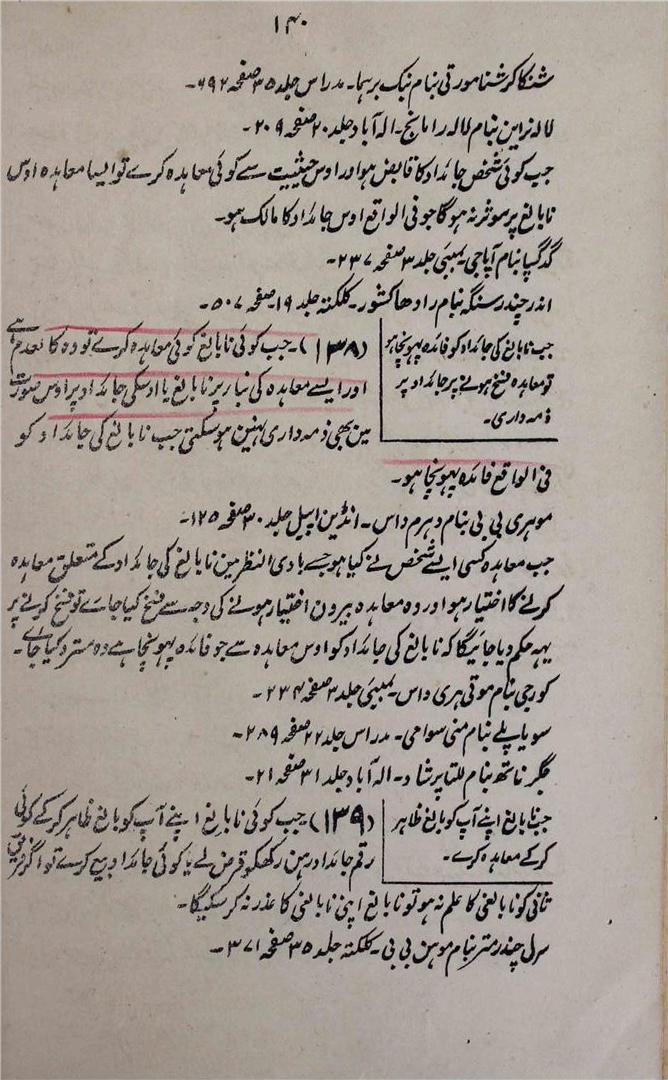 ۱۴۰
شنکا کرشنا مورتی بنام نبک برہما۔ مدراس جلد ۳۵ صفحہ ۶۹۲۔
لالہ نراین بنام لالہ راما نج۔ الہ آباد جلد ۲۰ صفحہ ۲۰۹۔
جب کوئی شخص جائداد کا قابض ہو اور اوس حیثیت سے کوئی معاہدہ کرے تو ایسا معاہدہ اوس
نابالغ پر موثر نہ ہوگا جو فی الواقع اوس جائداد کا مالک ہو۔
گدگپا بنام آپاجی۔ بمبئی جلد ۳ صفحہ ۲۳۷۔
اندر چندر سنگہ بنام رادھا کشور۔ کلکتہ جلد ۱۹ صفحہ ۵۰۷۔
جب نابالغ کی جائداد کو فائدہ پہونچا ہو
تو معاہدہ فسخ ہونے پر جائداد پر
ذمہ داری۔
(۱۳۸)۔ جب کوئی نابالغ کوئی معاہدہ کرے تو وہ کالعدم ہے
اور ایسے معاہدہ کی بنا پر نابالغ یا اوسکی جائداد پر اوس صورت
مین بھی ذمہ داری نہین ہوسکتی جب نابالغ کی جائداد کو
فی الواقع فائدہ پہونچا ہو۔
موہری بی بی بنام دہرم داس۔ انڈین اپیل جلد ۳۰ صفحہ ۱۲۵۔
جب معاہدہ کسی ایسے شخص نے کیا ہو جسے بادی النظر مین نابالغ کی جائداد کے متعلق معاہدہ
کرنے کا اختیار ہو اور وہ معاہدہ بیرون اختیار ہونے کی وجہ سے فسخ کیا جاے تو فسخ کرنے پر
یہہ حکم دیا جائیگا کہ نابالغ کی جائداد کو اوس معاہدہ سے جو فائدہ پہونچا ہے وہ مسترد کیا جاے۔
کورجی بنام موتی ہری داس۔ بمبئی جلد ۳ صفحہ ۲۳۴۔
سویا پلے بنام منی سوامی۔ مدراس جلد ۲۲ صفحہ ۲۸۹۔
جگرناتھ بنام للتا پرشاد۔ الہ آباد جلد ۳۱ صفحہ ۲۱۔
جب نابالغ اپنے آپ کو بالغ ظاہر
کرکے معاہدہ کرے۔
(۱۳۹)۔ جب کوئی نابالغ اپنے آپ کو بالغ ظاہر کرکے کوئی
رقم جائداد رہن رکھکر قرض لے یا کوئی جائداد بیع کرے تو اگر فریق
ثانی کو نابالغی کا علم نہ ہو تو نابالغ اپنی نابالغی کا عذر نہ کرسکیگا۔
سرل چندر متر بنام موہن بی بی۔ کلکتہ جلد ۳۵ صفحہ ۳۷۱۔